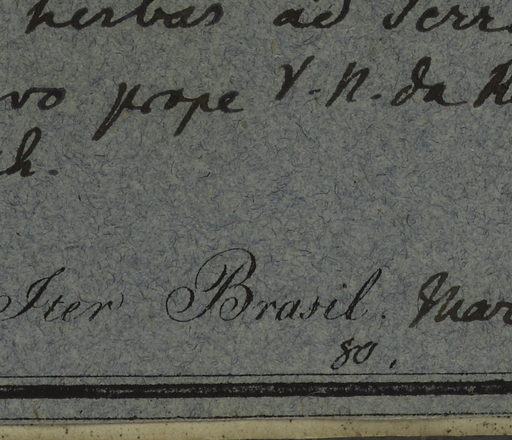 herbas ad Serr
vo prope V. N. da R
h.
Iter Brasil. Mar
80.